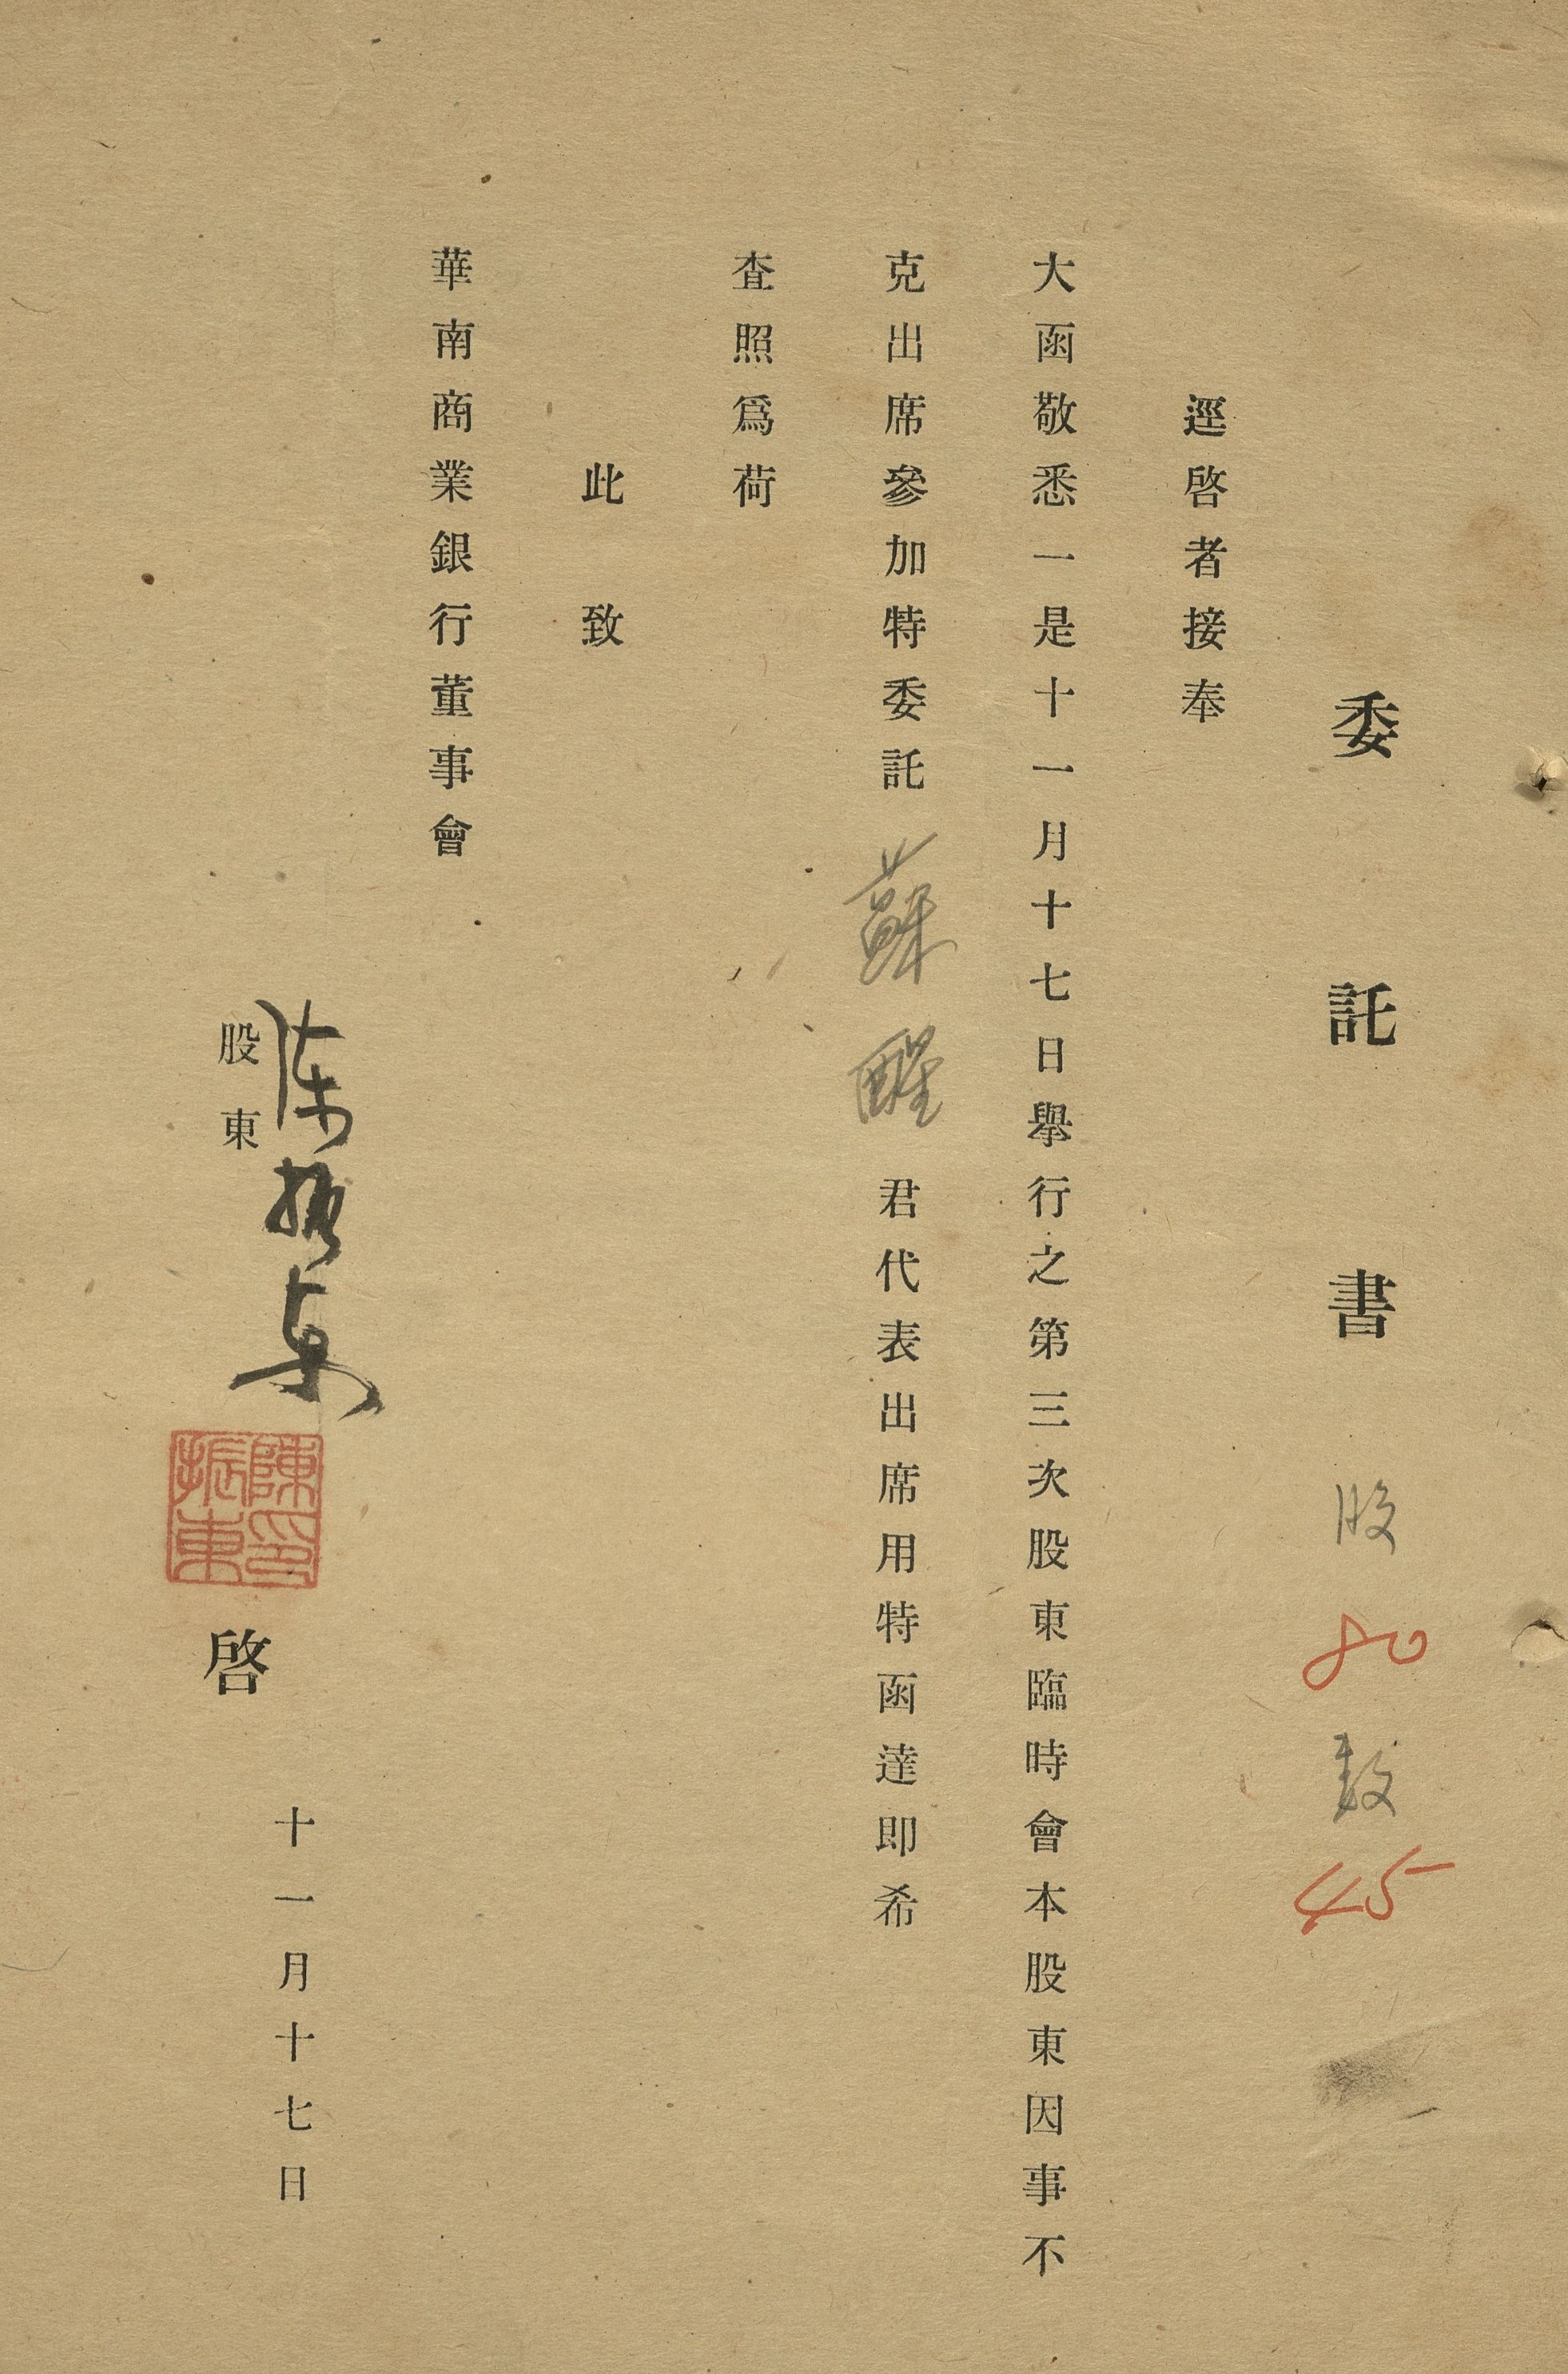 委託書 股 80 數 45
逕啓者接奉
大函敬悉一是十一月十七日舉行之第三次股東臨時會本股東因事不
克出席參加特委託 蘇醒 君代表出席用特函達即希
查照爲荷
此致
華南商業銀行董事會
股東 陳振東 啓
陳振東印
十一月十七日